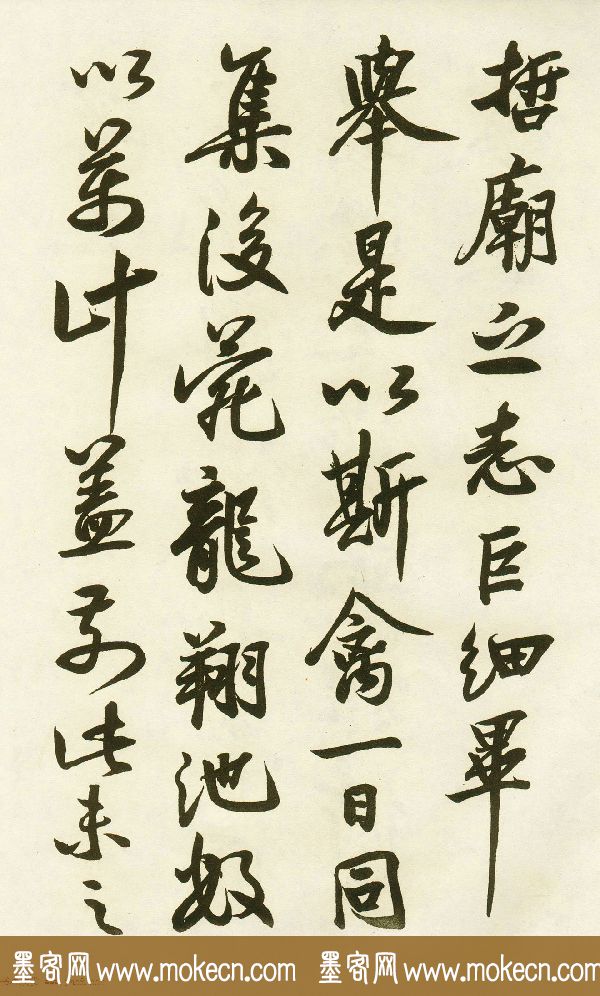 哲廟之志巨細畢
舉是以斯禽一日同
集後苑龍翔池數
以萬計蓋前此未之
墨客网 www.mokecn.com 墨客网 www.mokecn.com